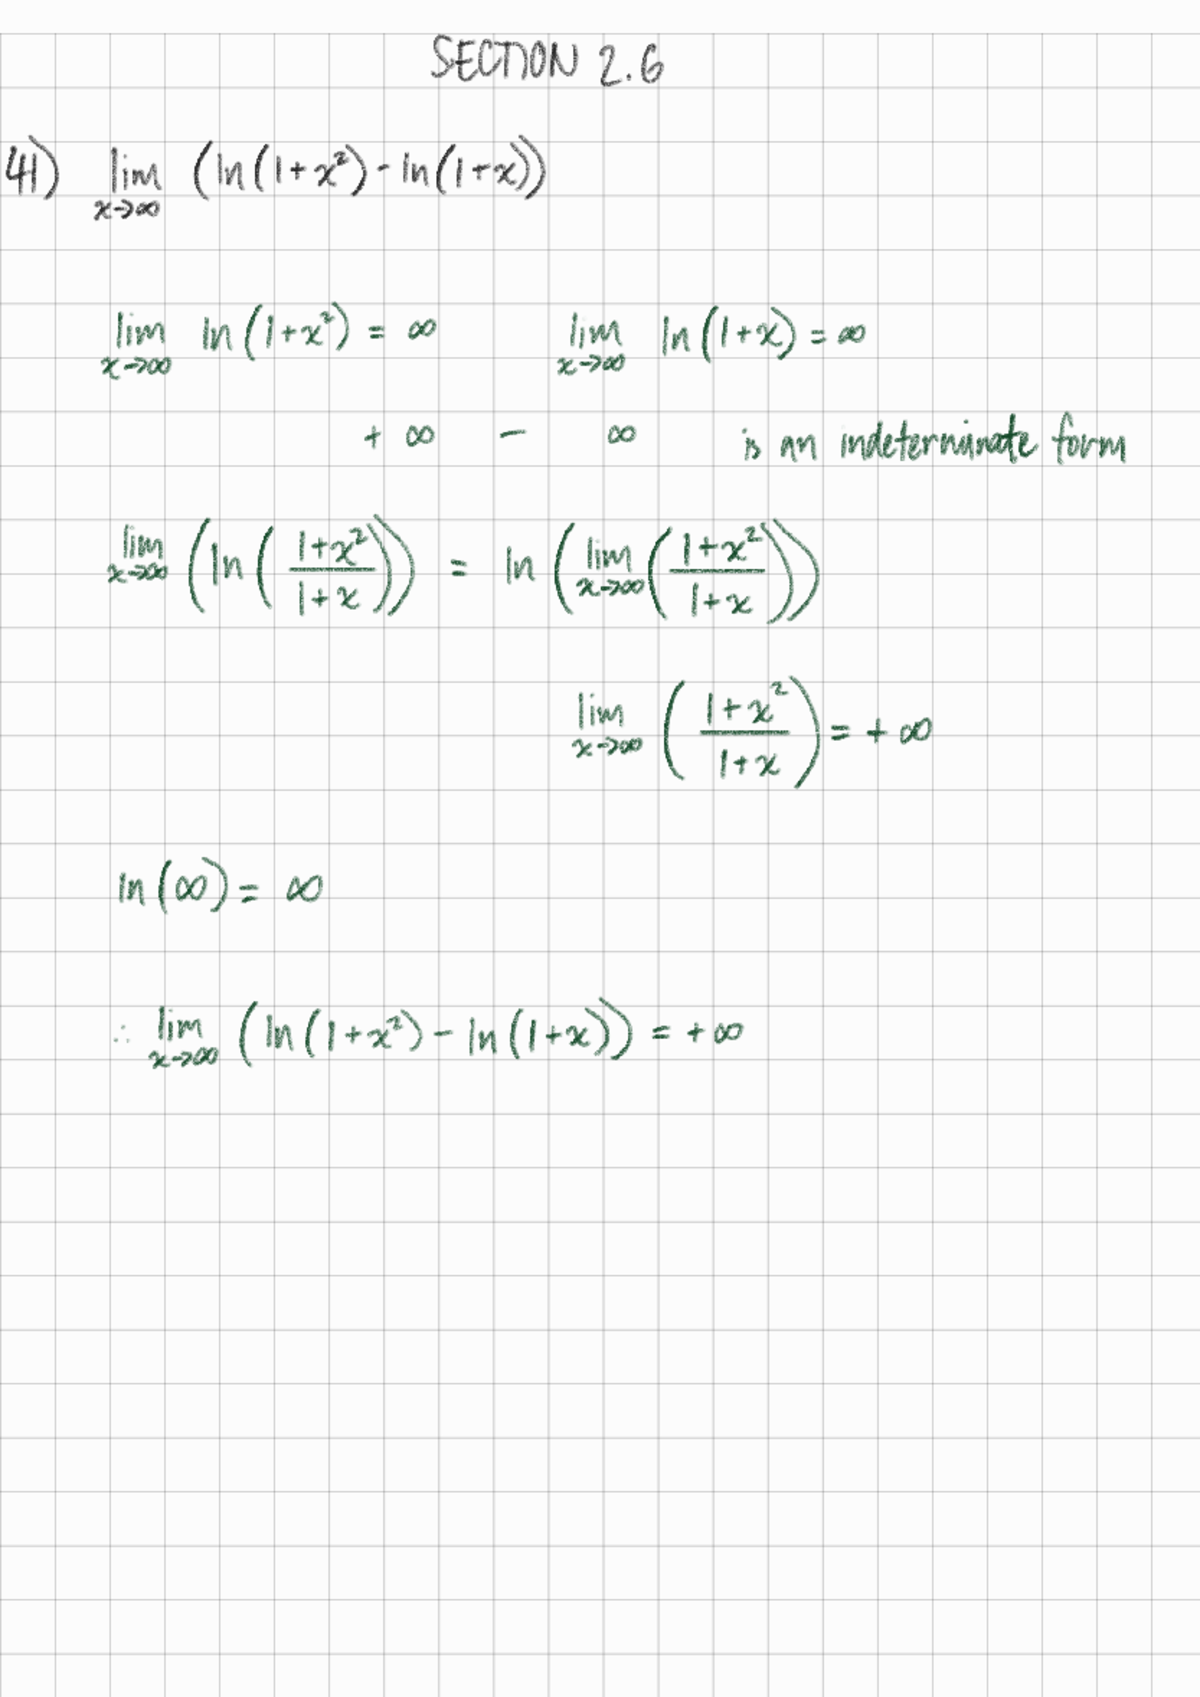 SECTION 2.6
41) lim x→∞ (ln(1+x²) - ln(1+x))
lim x→∞ ln(1+x²) = ∞ lim x→∞ ln(1+x) = ∞
+ ∞ - ∞ is an indeterminate form
lim x→∞ (ln((1+x²)/(1+x))) = ln(lim x→∞ ((1+x²)/(1+x)))
lim x→∞ ((1+x²)/(1+x)) = +∞
ln(∞) = ∞
∴ lim x→∞ (ln(1+x²) - ln(1+x)) = +∞